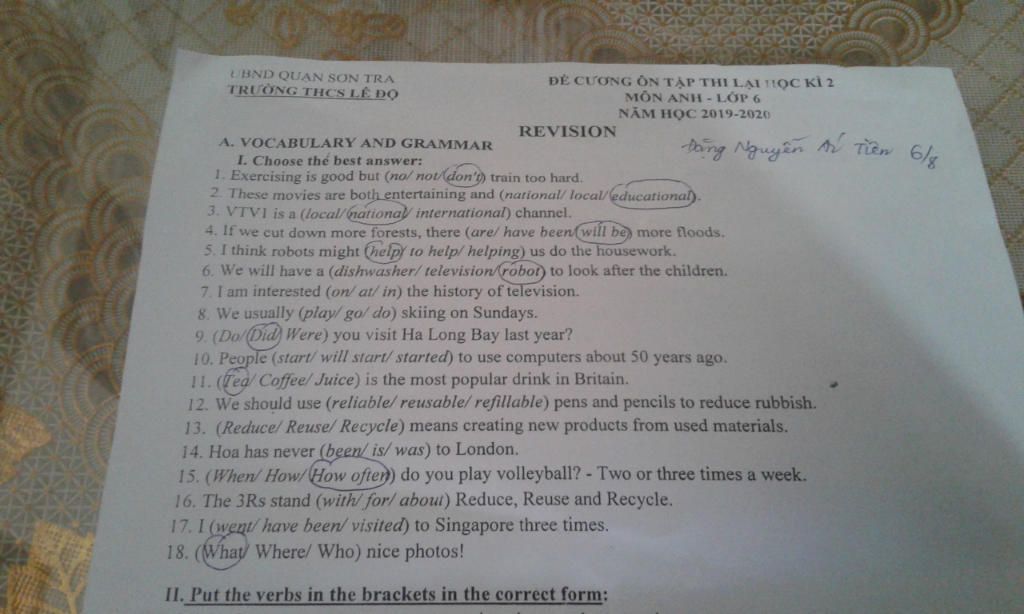 UBND QUẬN SƠN TRÀ
TRƯỜNG THCS LÊ ĐỘ
ĐỀ CƯƠNG ÔN TẬP THI LẠI HỌC KÌ 2
MÔN ANH - LỚP 6
NĂM HỌC 2019-2020
REVISION
Đặng Nguyễn Ái Tiên 6/8
A. VOCABULARY AND GRAMMAR
I. Choose the best answer:
1. Exercising is good but (no/ not/ don't) train too hard.
2. These movies are both entertaining and (national/ local/ educational).
3. VTV1 is a (local/ national/ international) channel.
4. If we cut down more forests, there (are/ have been/ will be) more floods.
5. I think robots might (help/ to help/ helping) us do the housework.
6. We will have a (dishwasher/ television/ robot) to look after the children.
7. I am interested (on/ at/ in) the history of television.
8. We usually (play/ go/ do) skiing on Sundays.
9. (Do/ Did/ Were) you visit Ha Long Bay last year?
10. People (start/ will start/ started) to use computers about 50 years ago.
11. (Tea/ Coffee/ Juice) is the most popular drink in Britain.
12. We should use (reliable/ reusable/ refillable) pens and pencils to reduce rubbish.
13. (Reduce/ Reuse/ Recycle) means creating new products from used materials.
14. Hoa has never (been/ is/ was) to London.
15. (When/ How/ How often) do you play volleyball? - Two or three times a week.
16. The 3Rs stand (with/ for/ about) Reduce, Reuse and Recycle.
17. I (went/ have been/ visited) to Singapore three times.
18. (What/ Where/ Who) nice photos!
II. Put the verbs in the brackets in the correct form: